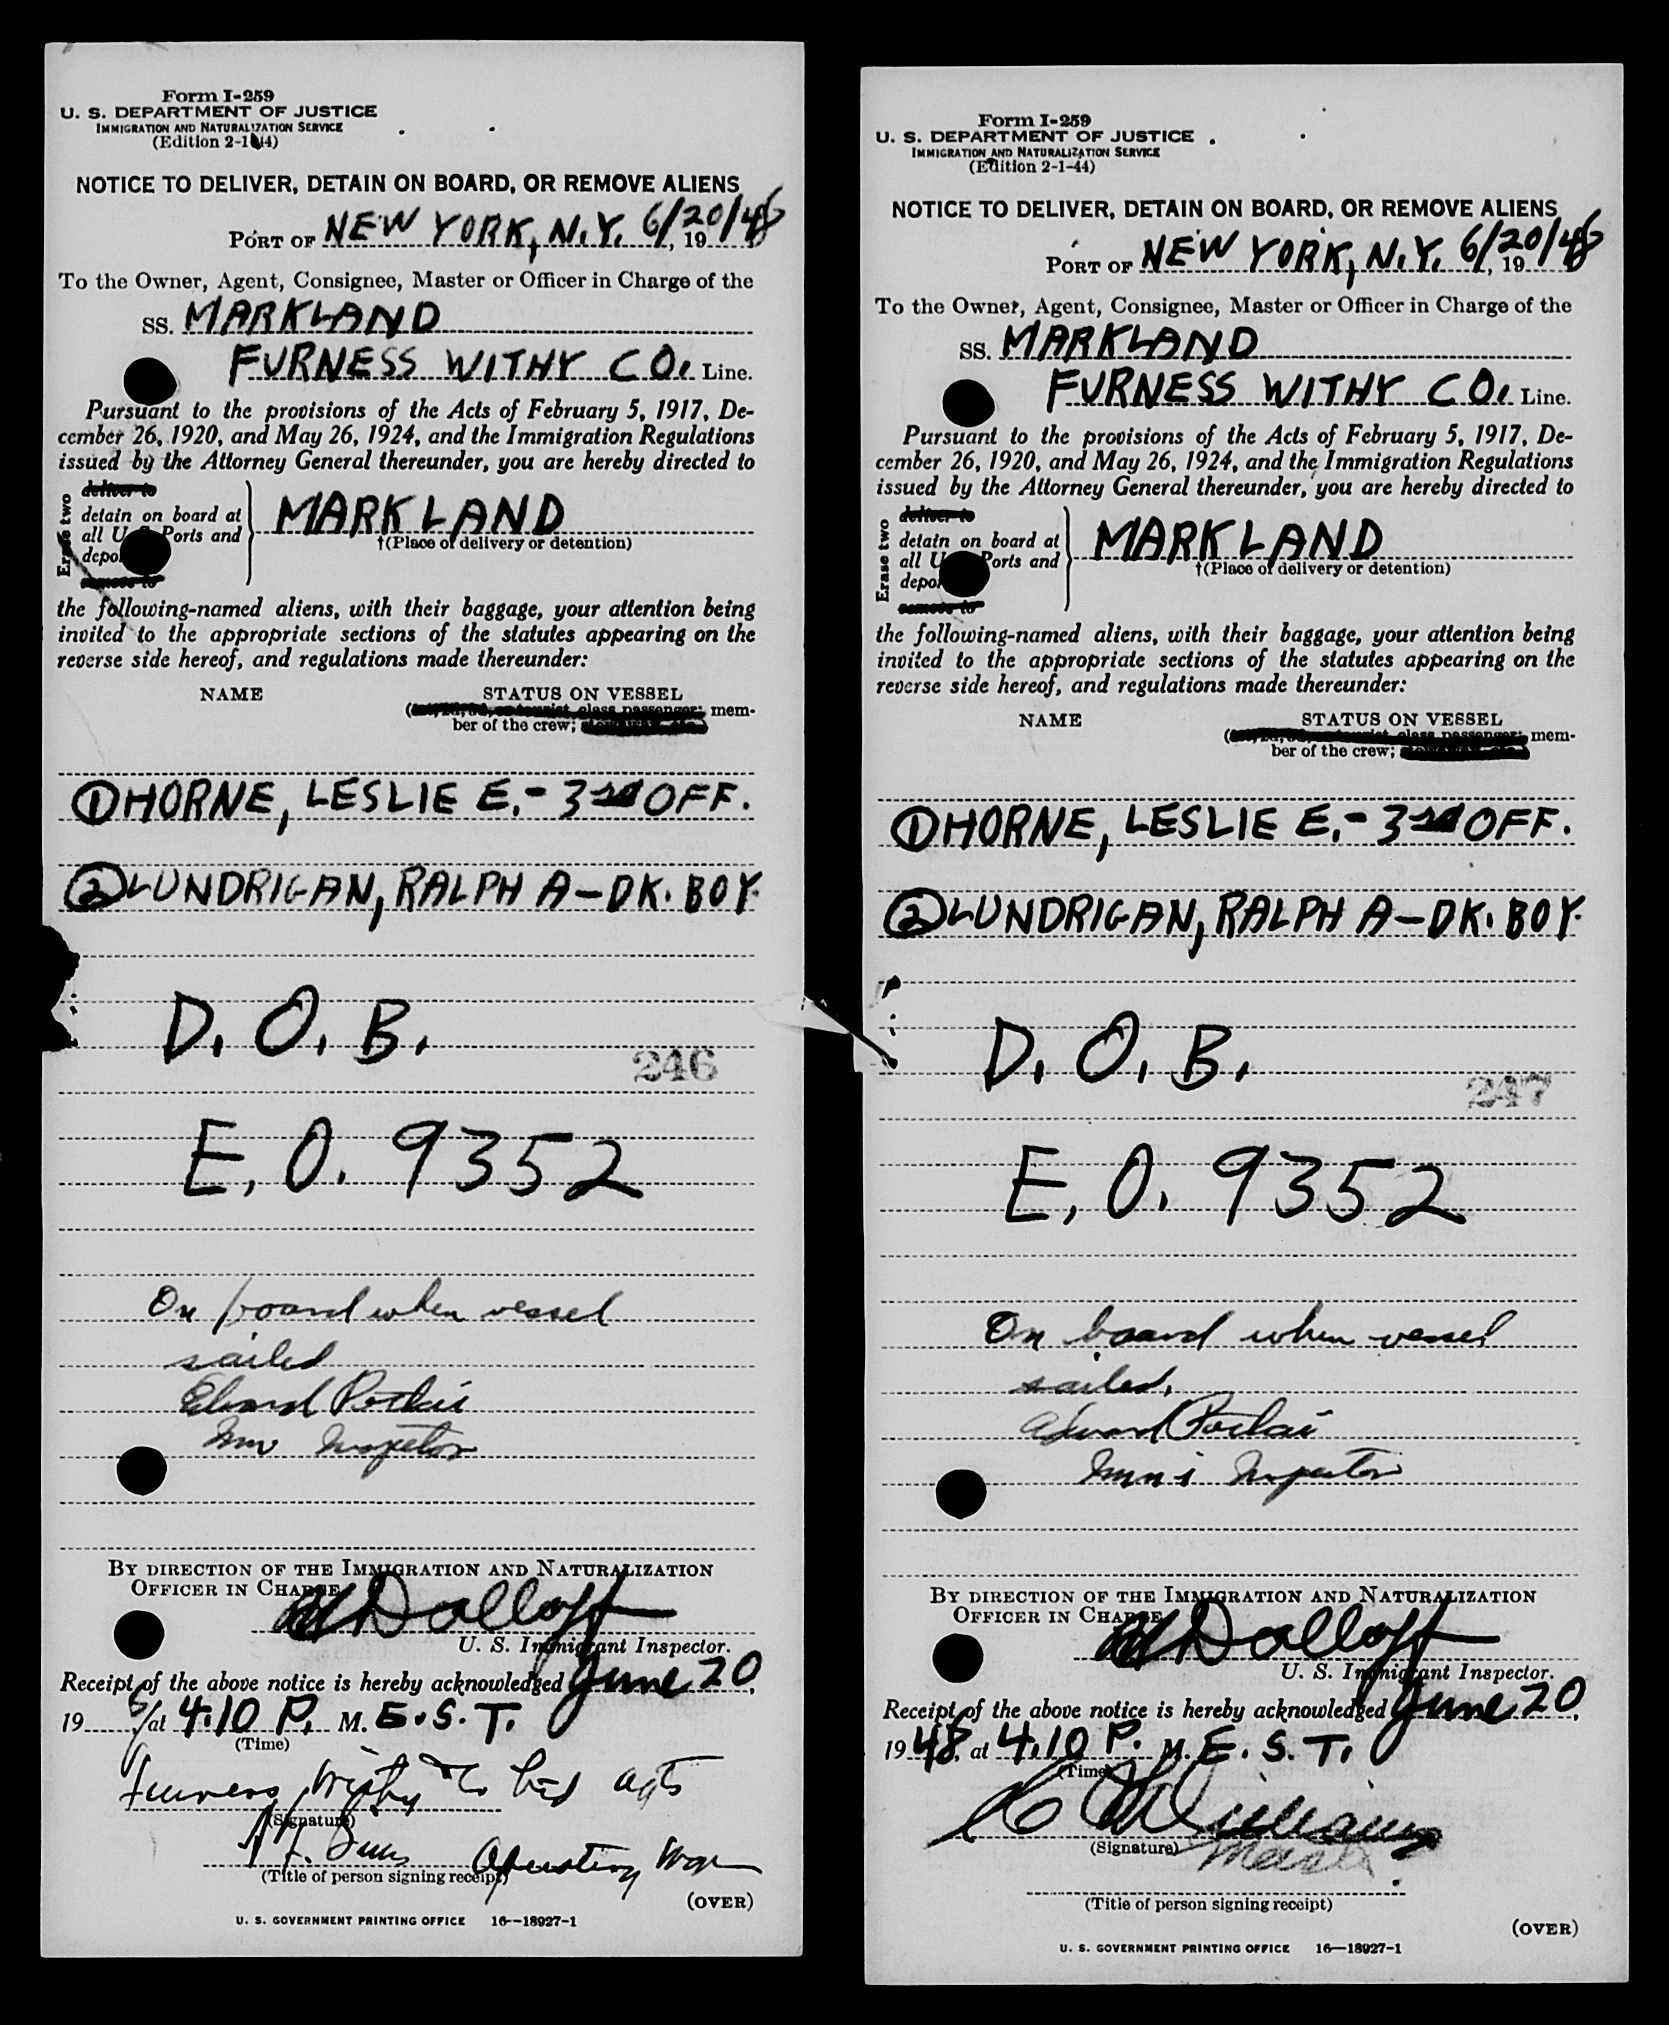 Form I-259
U. S. DEPARTMENT OF JUSTICE
IMMIGRATION AND NATURALIZATION SERVICE
(Edition 2-1-44)
NOTICE TO DELIVER, DETAIN ON BOARD, OR REMOVE ALIENS
PORT OF NEW YORK, N.Y. 6/20/46, 19
To the Owner, Agent, Consignee, Master or Officer in Charge of the
SS. MARKLAND
FURNESS WITHY CO. Line.
Pursuant to the provisions of the Acts of February 5, 1917, De-
cember 26, 1920, and May 26, 1924, and the Immigration Regulations
issued by the Attorney General thereunder, you are hereby directed to
Erase two
deliver to
detain on board at
all U Ports and
depo
remove to
MARKLAND
†(Place of delivery or detention)
the following-named aliens, with their baggage, your attention being
invited to the appropriate sections of the statutes appearing on the
reverse side hereof, and regulations made thereunder:
NAME STATUS ON VESSEL
(1st, 2d, 3d, or tourist class passenger; mem-
ber of the crew;
① HORNE, LESLIE E. - 3rd OFF.
② LUNDRIGAN, RALPH A - DK. BOY.
D. O. B.
246
E. O. 9352
On board when vessel
sailed
Edward
Imm Inspector
BY DIRECTION OF THE IMMIGRATION AND NATURALIZATION
OFFICER IN CHARGE
Dolloff
U. S. Immigrant Inspector.
Receipt of the above notice is hereby acknowledged June 20,
19 at 4:10 P. M. E.S.T.
(Time)
Furness Withy & Co Ltd Agts
(Signature)
Operating Mgr
(Title of person signing receipt)
(OVER)
U. S. GOVERNMENT PRINTING OFFICE 16—18927-1
Form I-259
U. S. DEPARTMENT OF JUSTICE
IMMIGRATION AND NATURALIZATION SERVICE
(Edition 2-1-44)
NOTICE TO DELIVER, DETAIN ON BOARD, OR REMOVE ALIENS
PORT OF NEW YORK, N.Y. 6/20/46, 19
To the Owner, Agent, Consignee, Master or Officer in Charge of the
SS. MARKLAND
FURNESS WITHY CO. Line.
Pursuant to the provisions of the Acts of February 5, 1917, De-
cember 26, 1920, and May 26, 1924, and the Immigration Regulations
issued by the Attorney General thereunder, you are hereby directed to
Erase two
deliver to
detain on board at
all U Ports and
depo
remove to
MARKLAND
†(Place of delivery or detention)
the following-named aliens, with their baggage, your attention being
invited to the appropriate sections of the statutes appearing on the
reverse side hereof, and regulations made thereunder:
NAME STATUS ON VESSEL
(1st, 2d, 3d, or tourist class passenger; mem-
ber of the crew;
① HORNE, LESLIE E. - 3rd OFF.
② LUNDRIGAN, RALPH A - DK. BOY.
D. O. B.
247
E. O. 9352
On board when vessel
sailed.
Edward
Imm i Inspector
BY DIRECTION OF THE IMMIGRATION AND NATURALIZATION
OFFICER IN CHARGE
Dolloff
U. S. Immigrant Inspector.
Receipt of the above notice is hereby acknowledged June 20,
1948, at 4:10 P. M. E.S.T.
(Time)
Williams
(Signature)
Master
(Title of person signing receipt)
(OVER)
U. S. GOVERNMENT PRINTING OFFICE 16—18927-1